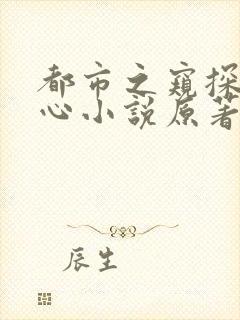 都市之窥探
心小说原著
辰生